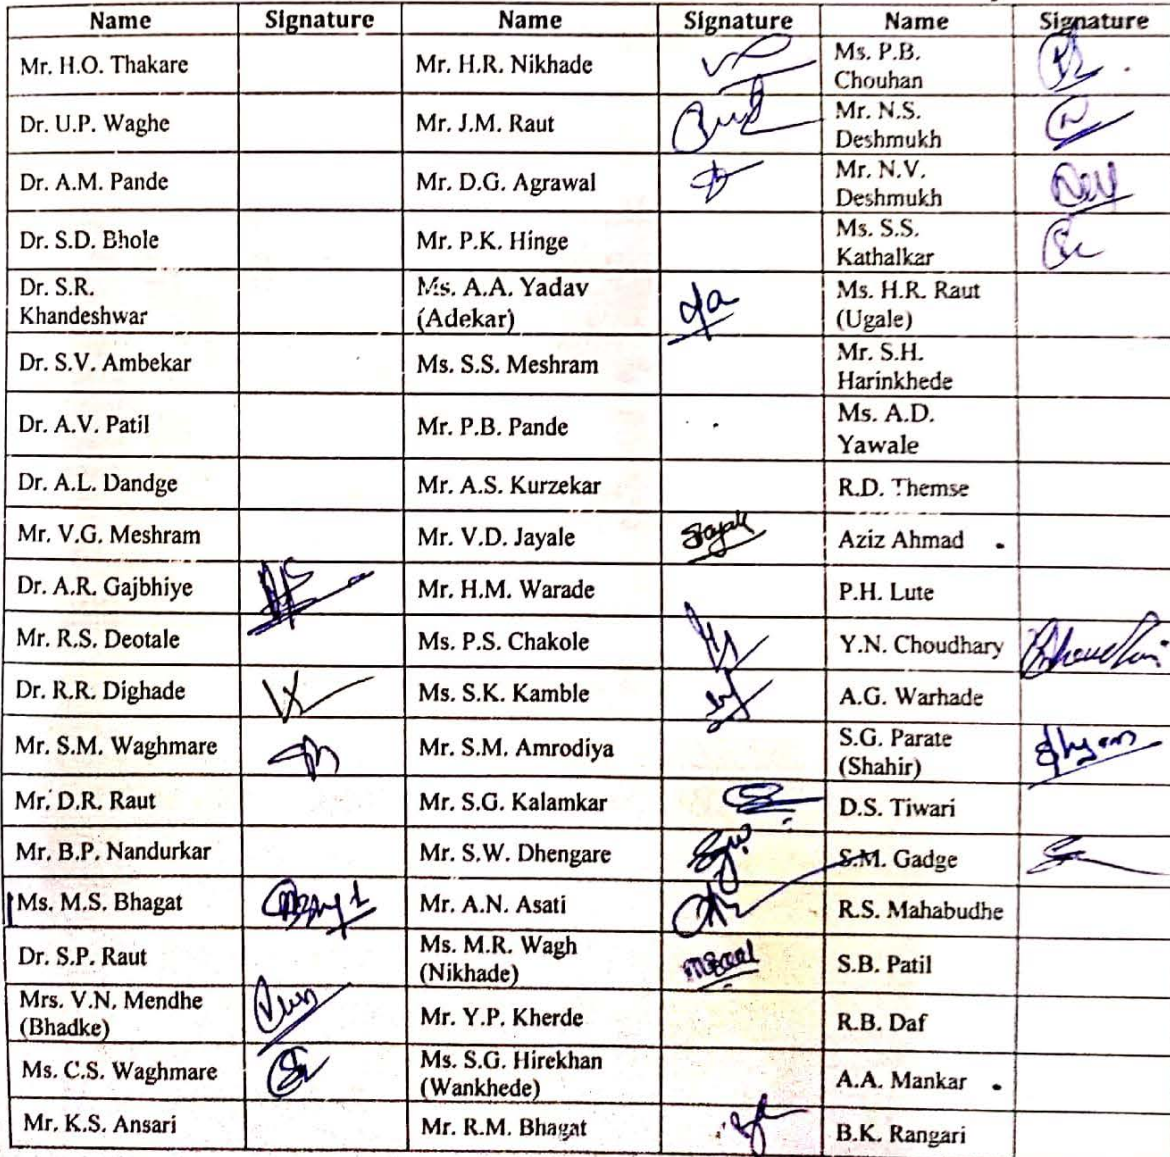 Name Signature Name Signature Name Signature
Mr. H.O. Thakare Mr. H.R. Nikhade Ms. P.B.
Chouhan
Dr. U.P. Waghe Mr. J.M. Raut Mr. N.S.
Deshmukh
Dr. A.M. Pande Mr. D.G. Agrawal Mr. N.V.
Deshmukh
Dr. S.D. Bhole Mr. P.K. Hinge Ms. S.S.
Kathalkar
Dr. S.R.
Khandeshwar Ms. A.A. Yadav
(Adekar) Ms. H.R. Raut
(Ugale)
Dr. S.V. Ambekar Ms. S.S. Meshram Mr. S.H.
Harinkhede
Dr. A.V. Patil Mr. P.B. Pande Ms. A.D.
Yawale
Dr. A.L. Dandge Mr. A.S. Kurzekar R.D. Themse
Mr. V.G. Meshram Mr. V.D. Jayale Aziz Ahmad
Dr. A.R. Gajbhiye Mr. H.M. Warade P.H. Lute
Mr. R.S. Deotale Ms. P.S. Chakole Y.N. Choudhary
Dr. R.R. Dighade Ms. S.K. Kamble A.G. Warhade
Mr. S.M. Waghmare Mr. S.M. Amrodiya S.G. Parate
(Shahir)
Mr. D.R. Raut Mr. S.G. Kalamkar D.S. Tiwari
Mr. B.P. Nandurkar Mr. S.W. Dhengare S.M. Gadge
Ms. M.S. Bhagat Mr. A.N. Asati R.S. Mahabudhe
Dr. S.P. Raut Ms. M.R. Wagh
(Nikhade) S.B. Patil
Mrs. V.N. Mendhe
(Bhadke) Mr. Y.P. Kherde R.B. Daf
Ms. C.S. Waghmare Ms. S.G. Hirekhan
(Wankhede) A.A. Mankar
Mr. K.S. Ansari Mr. R.M. Bhagat B.K. Rangari